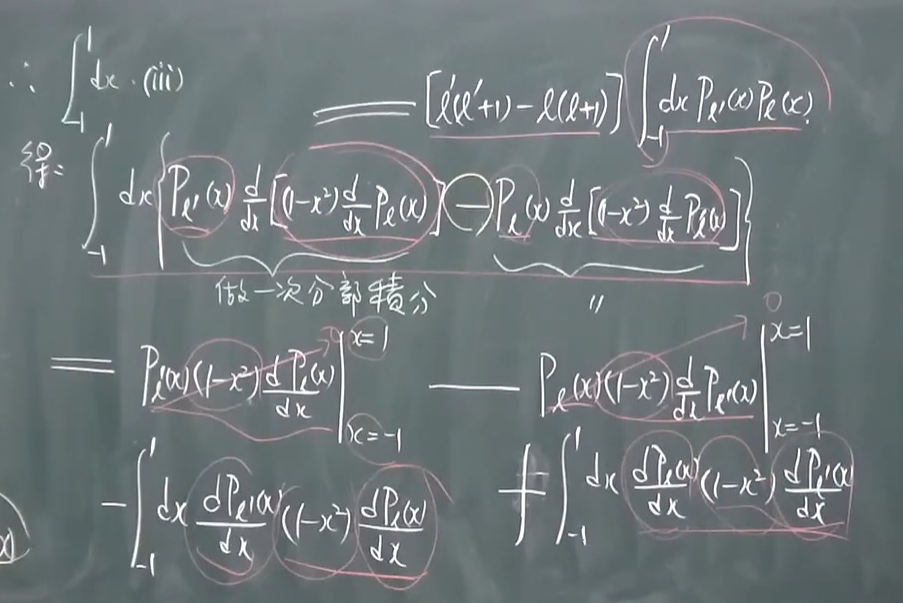 ∴ ∫_{-1}^{1} dx · (iii)
= [ℓ'(ℓ'+1) - ℓ(ℓ+1)] ∫_{-1}^{1} dx P_{ℓ'}(x) P_ℓ(x).
得: ∫_{-1}^{1} dx { P_{ℓ'}(x) d/dx [(1-x²) d/dx P_ℓ(x)] - P_ℓ(x) d/dx [(1-x²) d/dx P_{ℓ'}(x)] }
做一次分部積分 〃
= P_{ℓ'}(x) (1-x²) dP_ℓ(x)/dx |_{x=-1}^{x=1} 0 - P_ℓ(x) (1-x²) d/dx P_{ℓ'}(x) |_{x=-1}^{x=1} 0
- ∫_{-1}^{1} dx dP_{ℓ'}(x)/dx (1-x²) dP_ℓ(x)/dx + ∫_{-1}^{1} dx dP_ℓ(x)/dx (1-x²) dP_{ℓ'}(x)/dx
x)